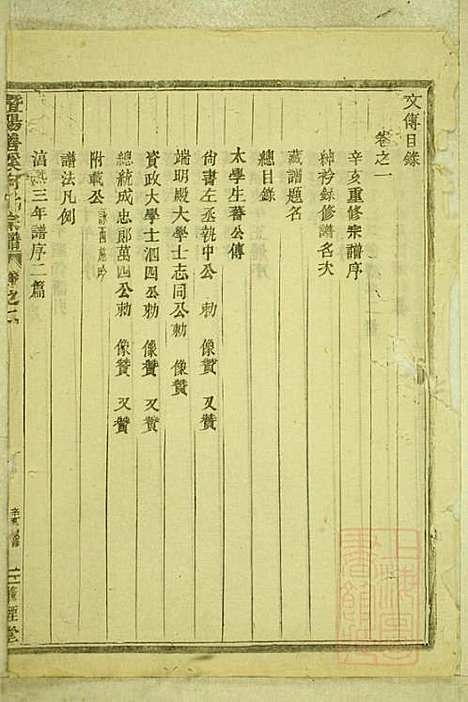 文傳目錄
卷之一
辛亥重修宗譜序
紳衿錄修譜名次
藏譜題名
總目錄
太學生蕃公傳
尙書左丞執中公 勅 像贊 又贊
端明殿大學士志同公勅 像贊
資政大學士泗四公勅 像贊 又贊
總統成忠郎萬四公勅 像贊 又贊
附載公
譜法凡例
淳熙三年譜序二篇
暨陽 宗譜
卷之一